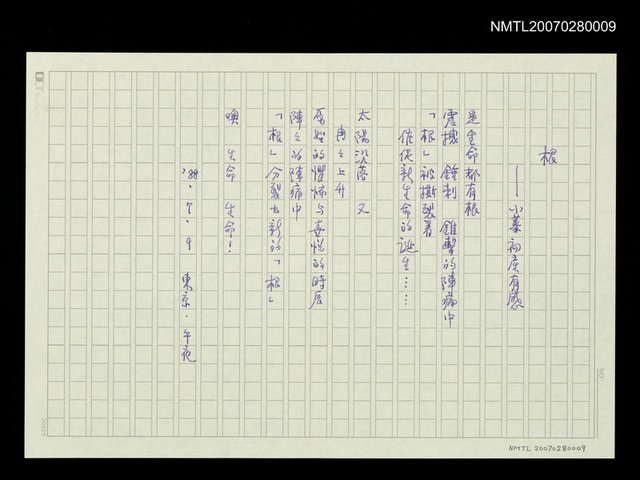 NMTL20070280009
根
——小蓁初產有感
是生命都有根
震撼 錐刺 錐擊的陣痛中
「根」被撕裂着
催促新生命的誕生……
太陽沒落 又
冉冉上升
原始的懼怖与喜悅的時辰
陣々的陣痛中
「根」分裂出新的「根」
噢 生命 生命！
'88.7.9 東京.午夜
NO
20×25
NMTL 20070280009